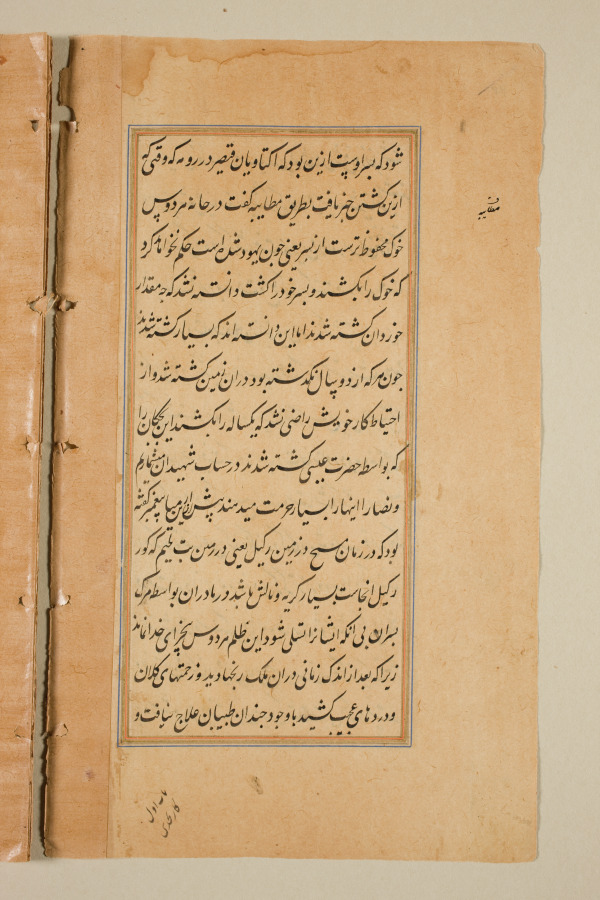 شود که پسر اوست ازین بود که اکتاویان قیصر در رومه که وقتی که
ازین کشتن خبر یافت بطریق مطایبه گفت در خانهٔ هردوس
خوک محفوظ ترست از پسر یعنی چون یهود شده است حکم نخواهد کرد
که خوک را بکشند و پسر خود را کشت دانسته نشد که چه مقدار
خوردان کشته شدند اما این دانسته اند که بسیار کشته شدند
چون هر که از دو سال نگذشته بود در ان زمین کشته شد و از
احتیاط کار خویش راضی نشد که یکساله را بکشند این بچکان را
که بواسطه حضرت عیسی کشته شدند در حساب شهیدان
و نصارا اینها را بسیار حرمت میدهند پیش ازین میا پیغمبر گفته
بود که در زمان مسیح در زمین رکیل یعنی در زمین بت لحم که کور
رکیل انجاست بسیار کریه و نالش باشد در مادران بواسطه مرک
پسران بی آنکه ایشانرا تسلی شود این ظلم هردوس بی جزای خدا نماند
زیرا که بعد از اندک زمانی در ان ملک رنجها دید و زحمتهای کلان
و دردهای عجب کشید با وجود چندان طبیبان علاج نیافت و
مطایبه
باب اول